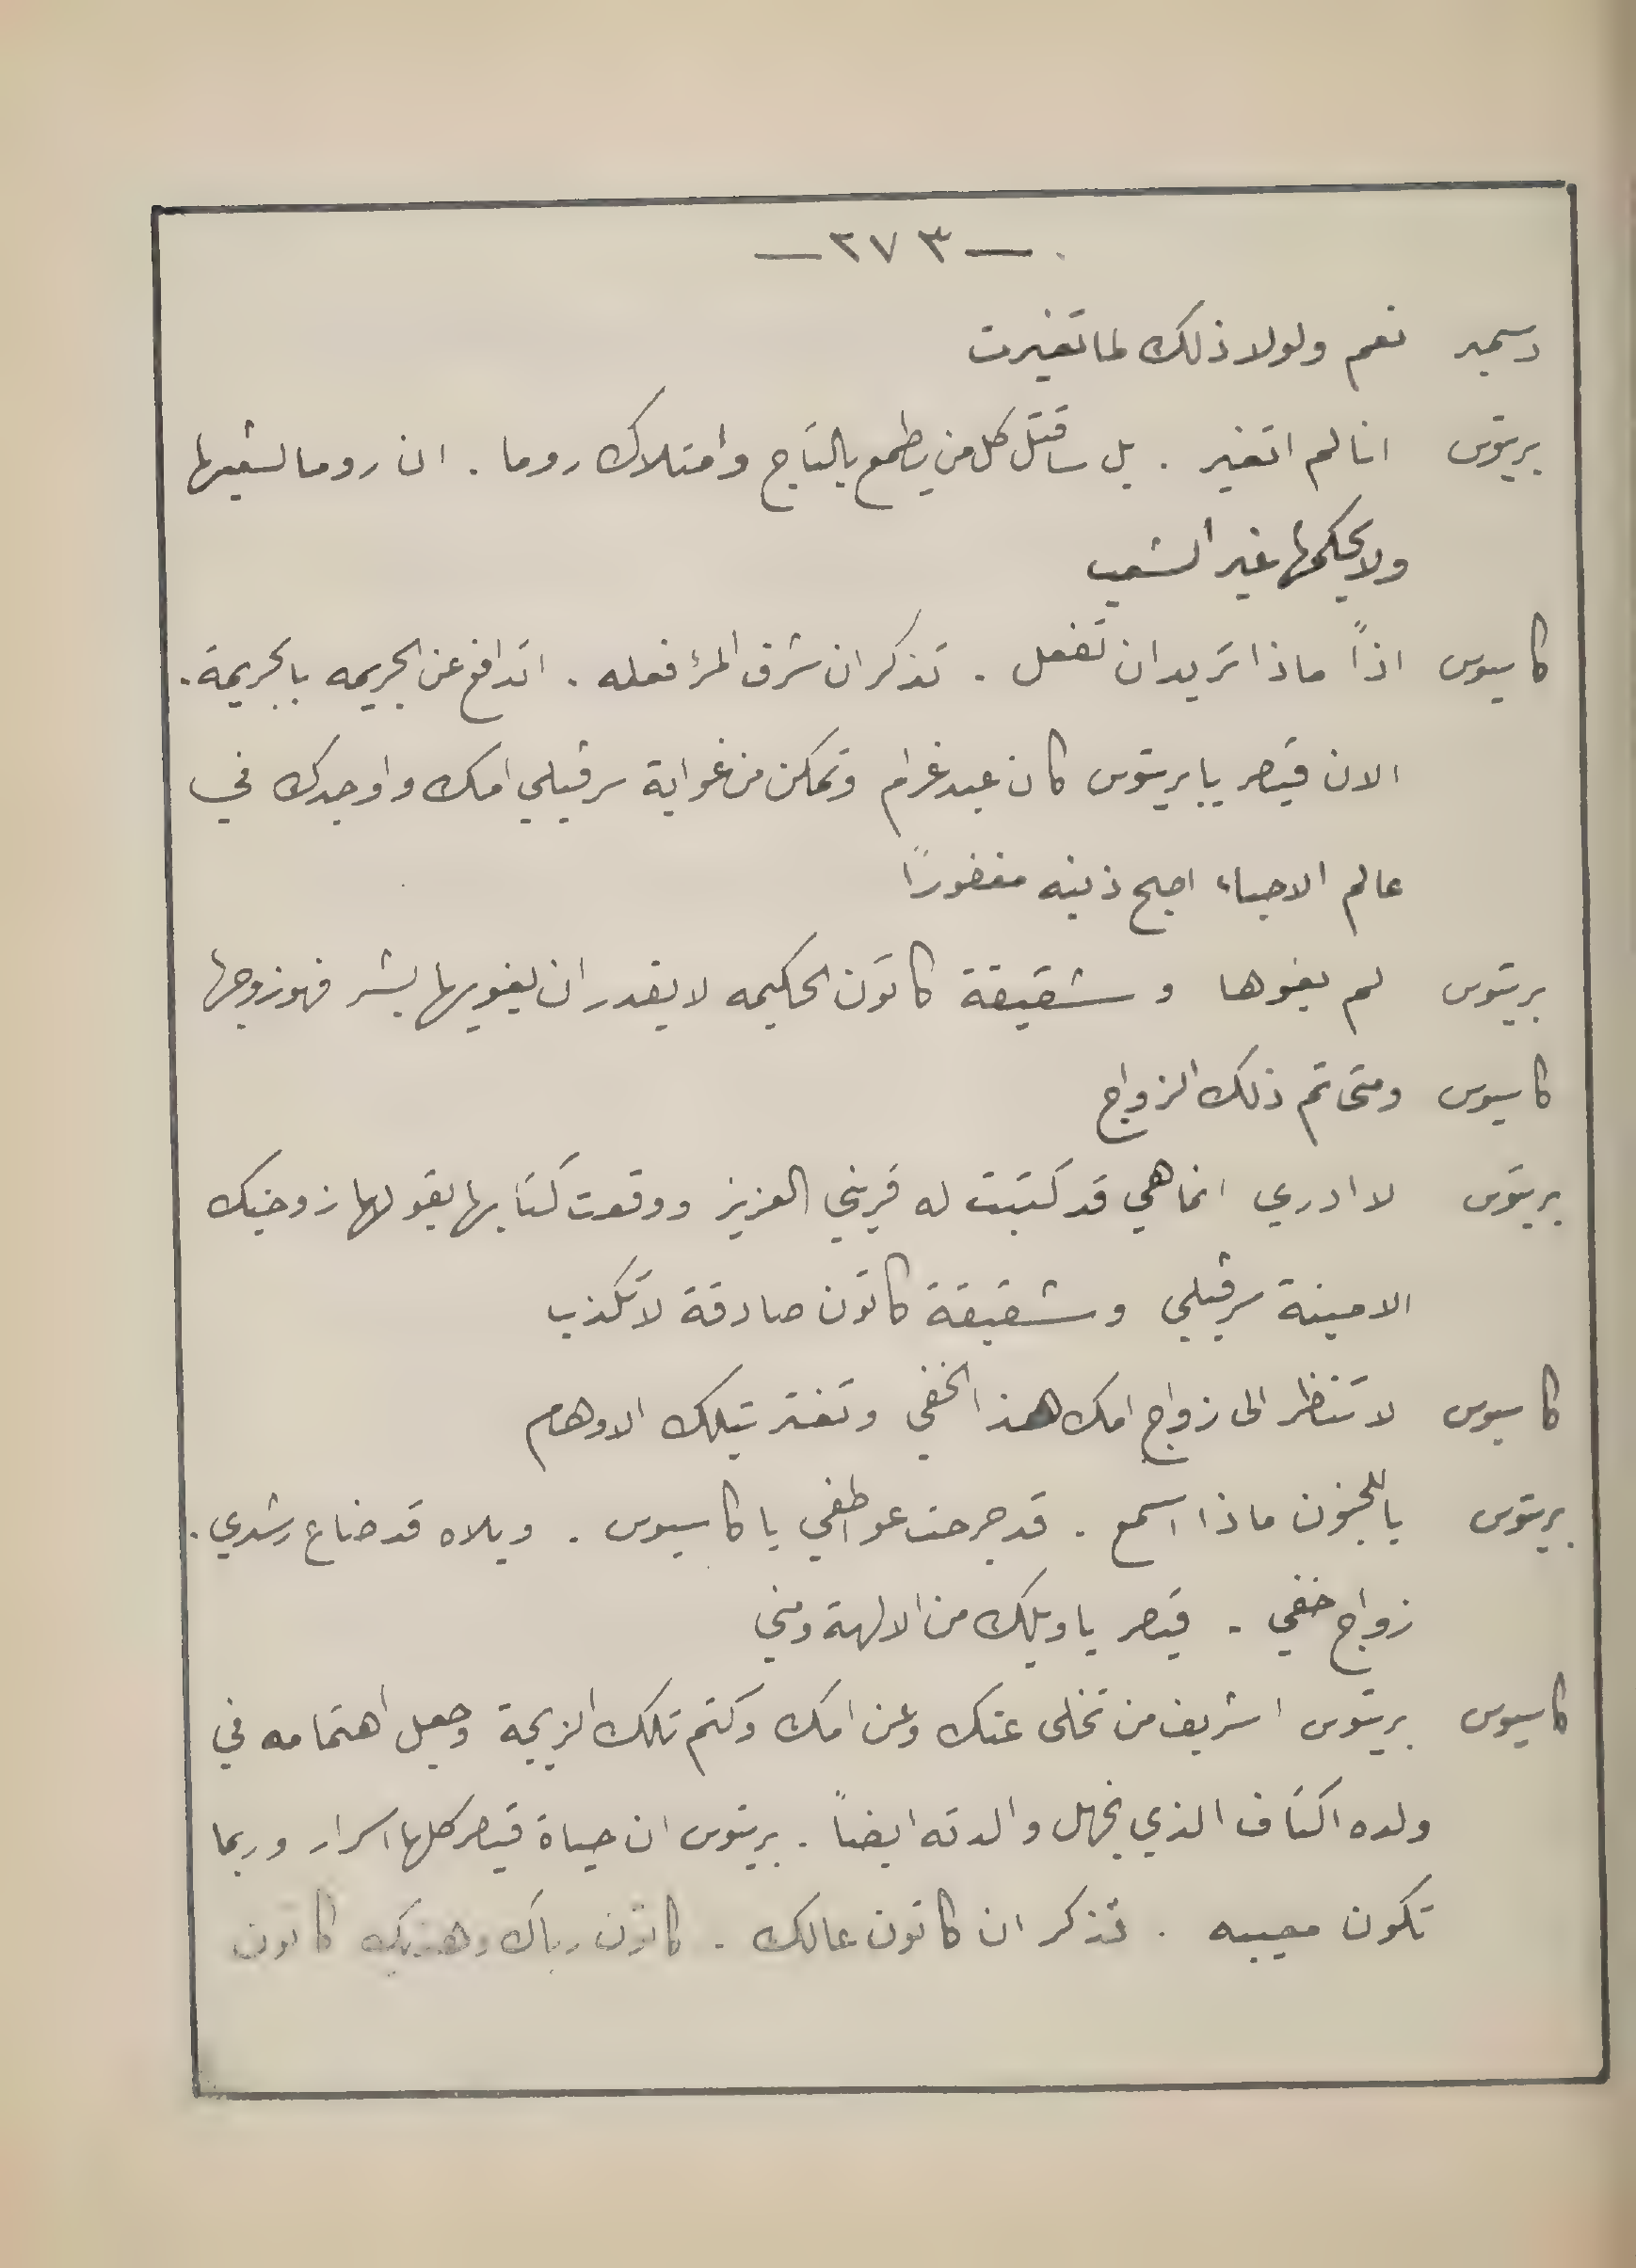 — ٢٧٣ —
دسمير نعم ولولا ذلك لما تغيرت
بريتوس انا لم اتغير . بل ساقتل كل من يطمع بالتاج وامتلاك روما . ان روما لشعبها
ولا يحكمها غير الشعب
كاسيوس اذاً ماذا تريد ان تفعل . تذكر ان شرف المرؤ فعله . اتدافع عن الجريمه بالجريمة .
الان قيصر يا بريتوس كان عبد غرام وتمكن من غواية سرفيلي امك واوجدك في
عالم الاحياء اصبح ذنبه مغفورًا
بريتوس لم يغوها وشقيقة كاتون الحكيمه لا يقدر ان يغويها بشر فهو زوجها
كاسيوس ومتى تم ذلك الزواج
بريتوس لا ادري انما هي قد كتبت له قريني العزيز ووقعت كتابها بقولها زوجتك
الامينة سرفيلي وشقيقة كاتون صادقة لا تكذب
كاسيوس لا تنظر الى زواج امك هذا الخفي وتغتر بتلك الاوهام
بريتوس يا للجنون ماذا اسمع . قد جرحت عواطفي يا كاسيوس . ويلاه قد ضاع رشدي .
زواج خفي . قيصر يا ويلك من الالهة ومني
كاسيوس بريتوس اشريف من تخلى عنك وعن امك وكتم تلك الزيجة وجعل اهتمامه في
ولده اكتاف الذي يجهل والدته ايضاً . بريتوس ان حياة قيصر كلها اسرار وربما
تكون معيبه . تذكر ان كاتون عالك . كاتون رباك كاتون